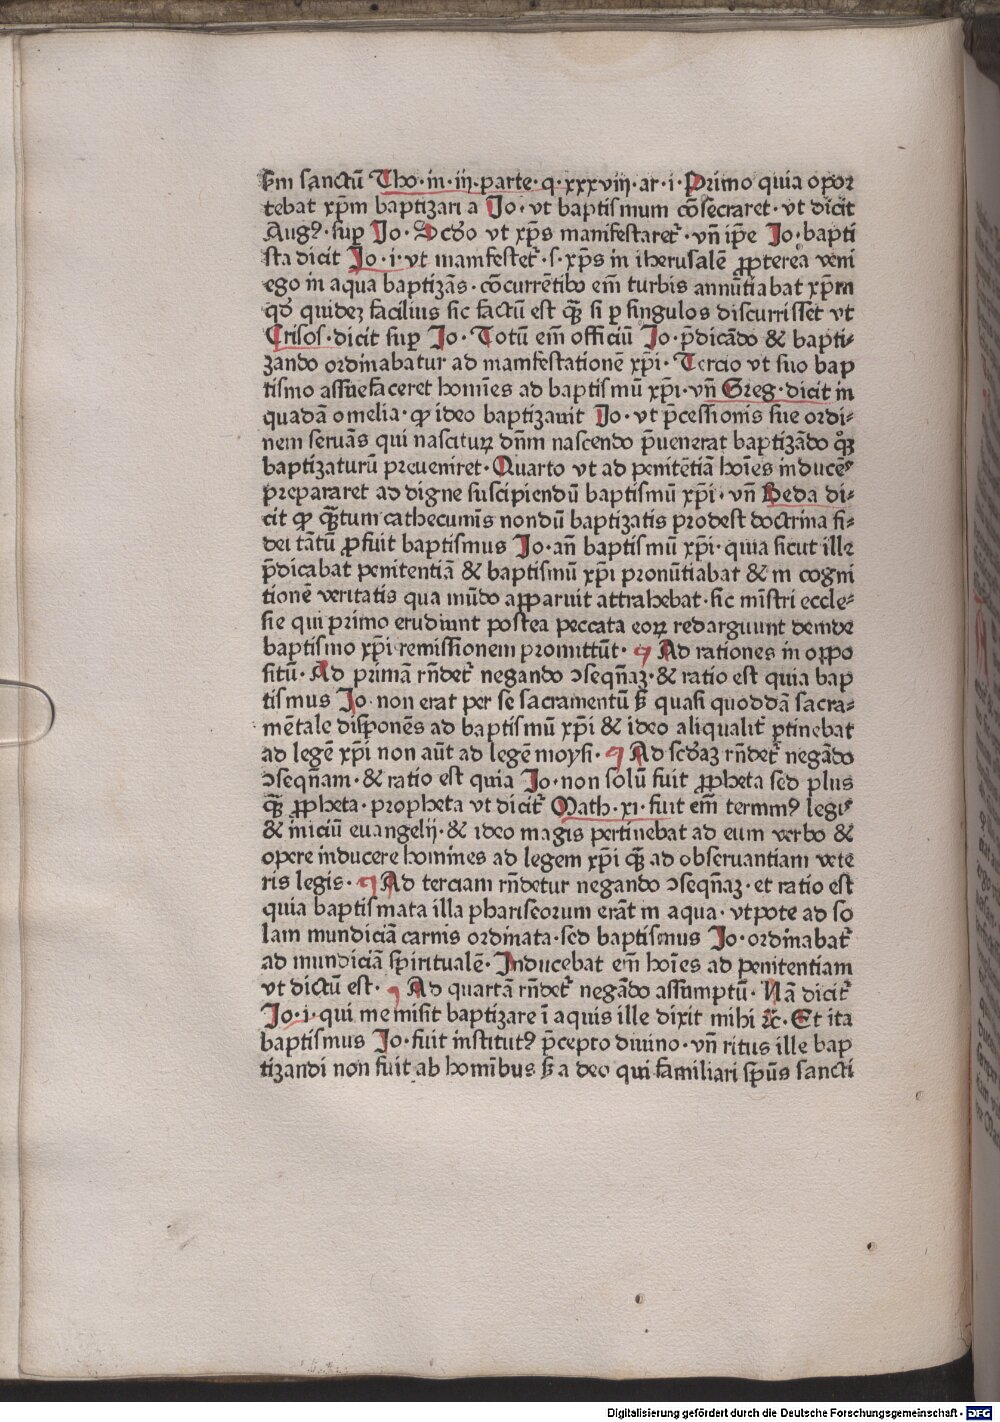 ẜm sanctū Tho·in·iij·parte·q·xxxviij·ar·i·Primo quia opor
tebat xp̄m baptizari a Jo·vt baptismum cōsecraret·vt dicit
Augꝰ·sup̱ Jo·Scd̄o vt xp̄s manifestaret᷑·vn̄ ip̄e Jo·bapti
sta dicit Jo·i·vt manifestet᷑·s·xp̄s in iherusalē ꝓpterea veni
ego in aqua baptizās·cōcurrētibꝰ em̄ turbis annūtiabat xp̄m
qd̄ quidez facilius sic factū est qᷓꝫ si ꝑ singulos discurrisset vt
Crisos·dicit sup̱ Jo·Totū em̄ officiū Jo·p̄dicādo & bapti-
zando ordinabatur ad manifestationē xp̄i·Tercio vt suo bap
tismo assuefaceret homīes ad baptismū xp̄i·vn̄ Greg·dicit in
quadā omelia·ꝙ ideo baptizauit Jo·vt p̄cessionis sue ordi-
nem seruās qui nasciturꝝ dn̄m nascendo p̄uenerat baptizādo qͦꝫ
baptizaturū preueniret·Quarto vt ad penitētiā hoīes inducēs
prepararet ad digne suscipiendū baptismū xp̄i·vn̄ Beda di-
cit ꝙ qᷓꝫtum cathecumīs nondū baptizatis prodest doctrina fi-
dei tātū ꝓfuit baptismus Jo·an̄ baptismū xp̄i·quia sicut ille
p̄dicabat penitentiā & baptismū xp̄i pronūtiabat & in cogni
tionē veritatis qua mūdo apparuit attrahebat·sic mīstri eccle-
sie qui primo erudiunt postea peccata eoꝝ redarguunt deinde
baptismo xp̄i remissionem promittūt· ¶ Ad rationes in oppo
situ̅·Ad primā rn̄det᷑ negando ↄseqn̄az·& ratio est quia bap
tismus Jo·non erat per se sacramentū ẜ quasi quoddā sacra-
mētale disponēs ad baptismū xp̄i & ideo aliqualit᷑ ꝑtinebat
ad legē xp̄i non aūt ad legē moysi· ¶ Ad scd̄az rn̄det᷑ negādo
ↄseqn̄am·& ratio est quia Jo·non solū fuit ꝓpheta sed plus
qᷓꝫ ꝓpheta·propheta vt dicit᷑ Math·xi·fuit em̄ terminꝰ legis
& iniciū euangelij·& ideo magis pertinebat ad eum verbo &
opere inducere homines ad legem xp̄i qᷓꝫ ad obseruantiam vete
ris legis· ¶ Ad terciam rn̄detur negando ↄseqn̄az·et ratio est
quia baptismata illa phariseorum erāt in aqua·vtpote ad so
lam mundiciā carnis ordinata·sed baptismus Jo·ordinabat᷑
ad mundiciā spiritualē·Inducebat em̄ hoīes ad penitentiam
vt dictū est· ¶ Ad quartā rn̄det᷑ negādo assumptū·Nā dicit᷑
Jo·i·qui me misit baptizare ī aquis ille dixit mihi ⁊c·Et ita
baptismus Jo·fuit institutꝰ p̄cepto diuino·vn̄ ritus ille bap
tizandi non fuit ab homībus ẜ a deo qui familiari spūs sancti
Digitalisierung gefördert durch die Deutsche Forschungsgemeinschaft - DFG